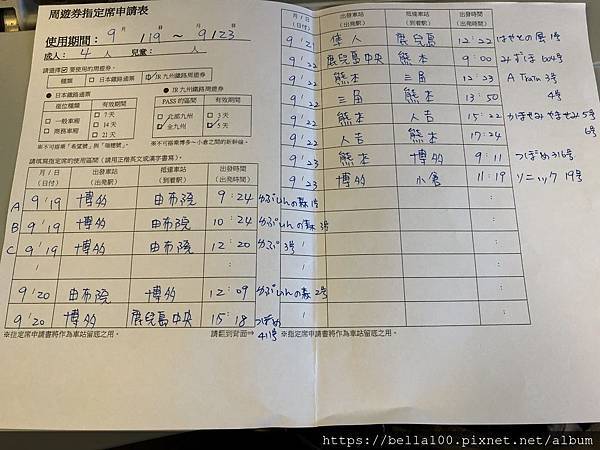 周遊券指定席申請表
月 日 月 日
使用期間：9/19～9/23
成人：4人 兒童：人
請選擇☑要使用的周遊券。
種類 □ 日本鐵路通票 ☑ JR 九州鐵路周遊券
● 日本鐵路通票 ● JR 九州鐵路周遊券
座位種類 有效期間 PASS 的區間 有效期間
□ 一般車廂 □ 7 天 □ 北部九州 □ 3 天
□ 商務車廂 □ 14 天 ☑ 全九州 ☑ 5 天
□ 21 天
※不可搭乘「希望號」與「瑞穗號」。 ※不可搭乘博多～小倉之間的新幹線。
請填寫指定席的使用區間（請用正楷英文或漢字書寫）。
月／日 出發車站 抵達車站 出發時間
（日付） （出発駅） （到着駅） （出発時間）
A 9/19 博多 由布院 9:24 ゆふいんの森1号
B 9/19 博多 由布院 10:24 ゆふいんの森3号
C 9/19 博多 由布院 12:20 ゆふ3号
/ :
9/20 由布院 博多 12:09 ゆふいんの森2号
9/20 博多 鹿兒島中央 15:18 つばめ411号
※指定席申請書將作為車站留底之用。 請翻到背面⇒
月／日 出發車站 抵達車站 出發時間
（日付） （出発駅） （到着駅） （出発時間）
9/21 隼人 鹿兒島 12:22 はやとの風1号
9/22 鹿兒島中央 熊本 9:00 みずほ604号
9/22 熊本 三角 12:23 A Train 3号
9/22 三角 熊本 13:50 4号
9/22 熊本 人吉 15:22 かわせみ やませみ5号
9/22 人吉 熊本 17:24 6号
9/23 熊本 博多 9:11 つばめ316号
9/23 博多 小倉 11:19 ソニック 19号
/ :
/ :
/ :
※指定席申請書將作為車站留底之用。
https://bella100.pixnet.net/album